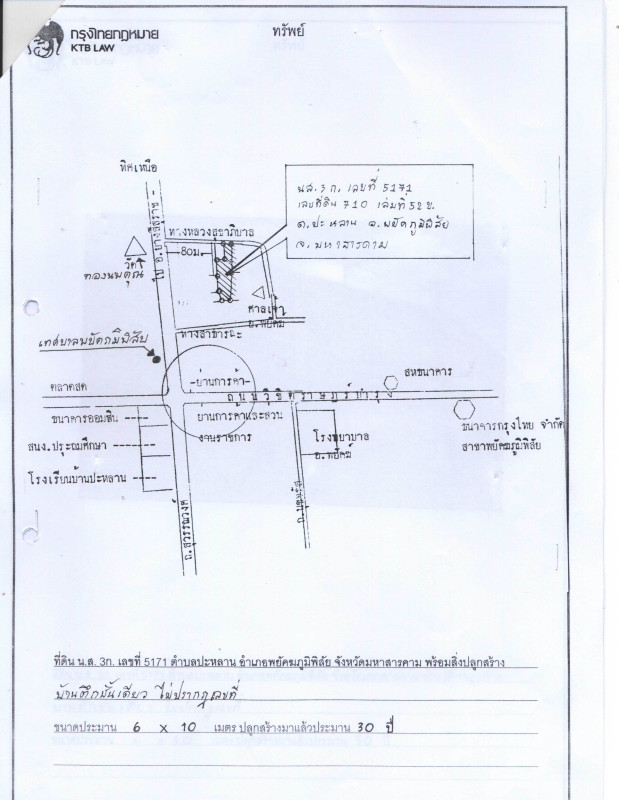 กรุงไทยกฎหมาย
KTB LAW
ทรัพย์
ทิศเหนือ
นส.3 ก. เลขที่ 5171
เลขที่ดิน 710 เล่มที่ 52 ข.
ต.ปะหลาน อ.พยัคภูมิพิสัย
จ.มหาสารคาม
ทางหลวงสุขาภิบาล
80ม.
วัด
ทองนพคุณ
ไป อ.ยางสีสุราช
ศาลเจ้า
อ.พยัคฆ์
ทางสาธารณะ
เทศบาลพยัคภูมิพิสัย
-ย่านการค้า-
ตลาดสด
ถนนวิชิตราษฎร์บำรุง
สหธนาคาร
ธนาคารออมสิน
ย่านการค้าและส่วน
งานราชการ
สนง.ประถมศึกษา
โรงเรียนบ้านปะหลาน
โรงพยาบาล
อ.พยัคฆ์
ธนาคารกรุงไทย จำกัด
สาขาพยัคฆภูมิพิสัย
ถ.สุวรรณวงศ์
ที่ดิน น.ส. 3ก. เลขที่ 5171 ตำบลปะหลาน อำเภอพยัคฆภูมิพิสัย จังหวัดมหาสารคาม พร้อมสิ่งปลูกสร้าง
บ้านตึกชั้นเดียว ไม่ปรากฏเลขที่
ขนาดประมาน 6 x 10 เมตร ปลูกสร้างมาแล้วประมาน 30 ปี